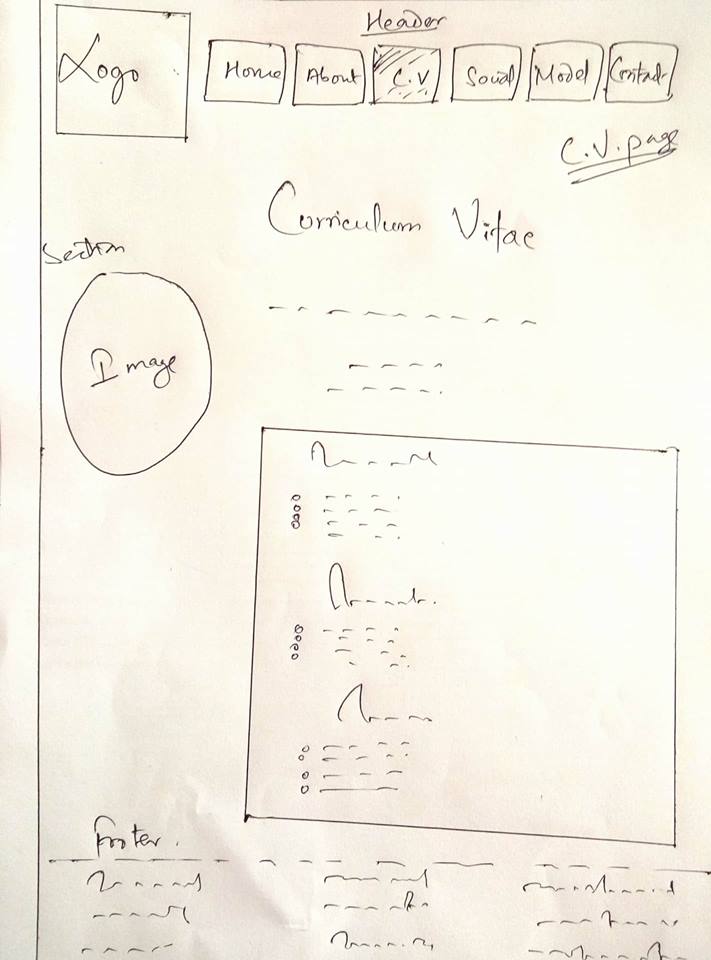 Header
Logo
Home
About
C.V
Social
Model
Contact
C.V. page
Curriculum Vitae
Section
Image
Footer.